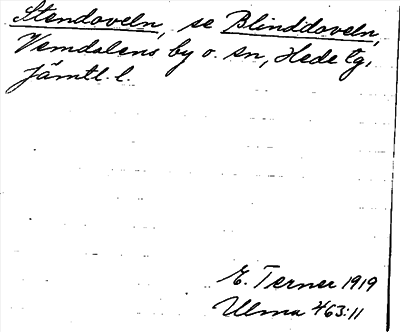 Stendoveln, se Blinddoveln,
Vemdalens by o. sn, Hede tg,
Jämtl. l.
E. Terner 1919
Ulma 463:11